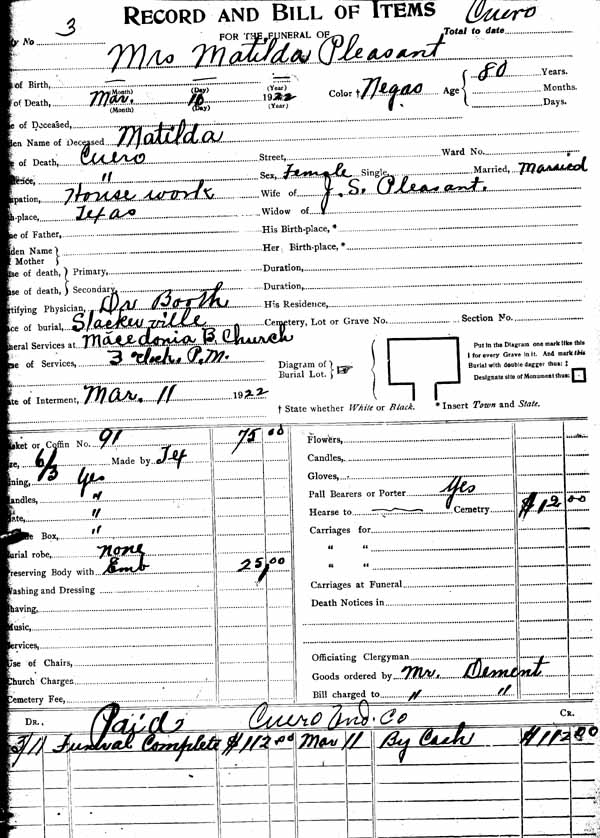 RECORD AND BILL OF ITEMS Cuero
3 FOR THE FUNERAL OF Total to date
Mrs Matilda Pleasant
of Birth, (Month) (Day) (Year)
of Death, Mar. 1922 Color † Negro Age 80 Years.
(Month) (Day) (Year) Months.
Days.
of Deceased,
Name of Deceased Matilda
of Death, Cuero Street, Ward No.
" Sex, Female Single, Married, Married
House work Wife of J. S. Pleasant.
place, Texas Widow of
of Father, His Birth-place, *
Name Mother Her Birth-place, *
of death, Primary, Duration,
of death, Secondary, Duration,
Physician, Dr Booth His Residence,
of burial, Cemetery, Lot or Grave No. Section No.
Services at Macedonia B. Church
of Services, 3 P.M.
Diagram of Burial Lot. ☞
Put in the Diagram one mark like this
I for every Grave in it. And mark this
Burial with double dagger thus: ‡
Designate site of Monument thus:
of Interment, Mar. 11 1922
† State whether White or Black. * Insert Town and State.
or Coffin No. 91 75 00 Flowers,
6/3 Made by Tex Candles,
Yes Gloves,
" Pall Bearers or Porter Yes
" Hearse to Cemetry $12 00
Box, " Carriages for
robe, none " "
Preserving Body with Emb 25,00 " "
Washing and Dressing Carriages at Funeral
Shaving, Death Notices in
Music,
Services,
Use of Chairs, Officiating Clergyman
Church Charges Goods ordered by Mr. Dement
Cemetery Fee, Bill charged to " "
DR. Paid Cuero Und. Co CR.
3/11 Funeral Complete $112 00 Mar 11 By Cash $112 00